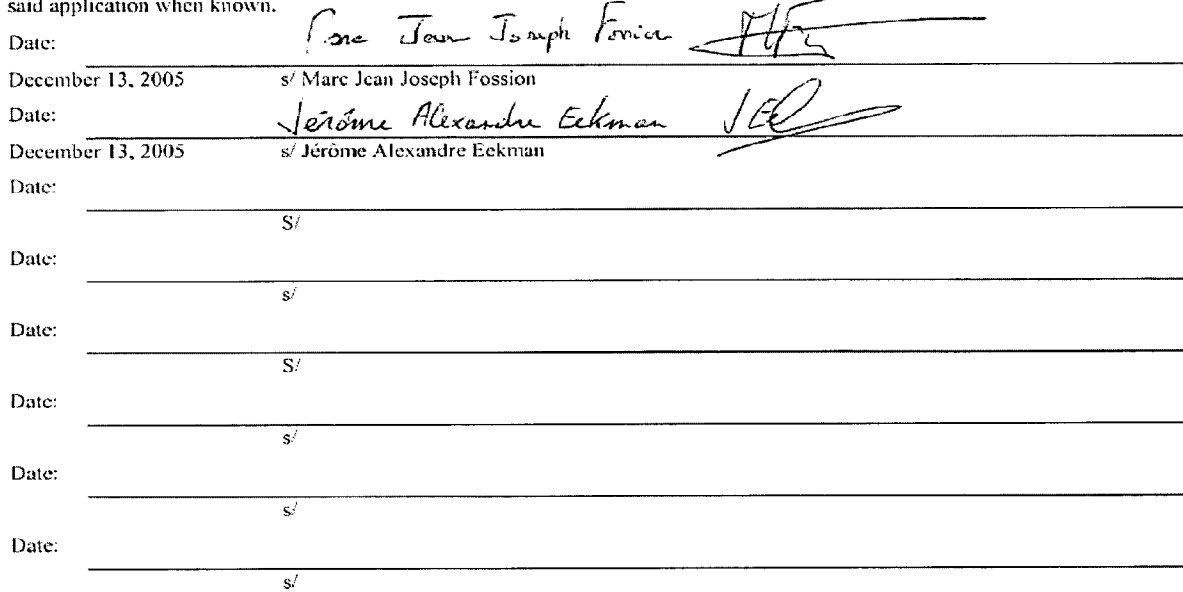 said application when known.
Date: Marc Jean Joseph Fossion
December 13, 2005 s/ Marc Jean Joseph Fossion
Date: Jérôme Alexandre Eckman JEC
December 13, 2005 s/ Jérôme Alexandre Eckman
Date:
S/
Date:
s/
Date:
S/
Date:
s/
Date:
s/
Date:
s/